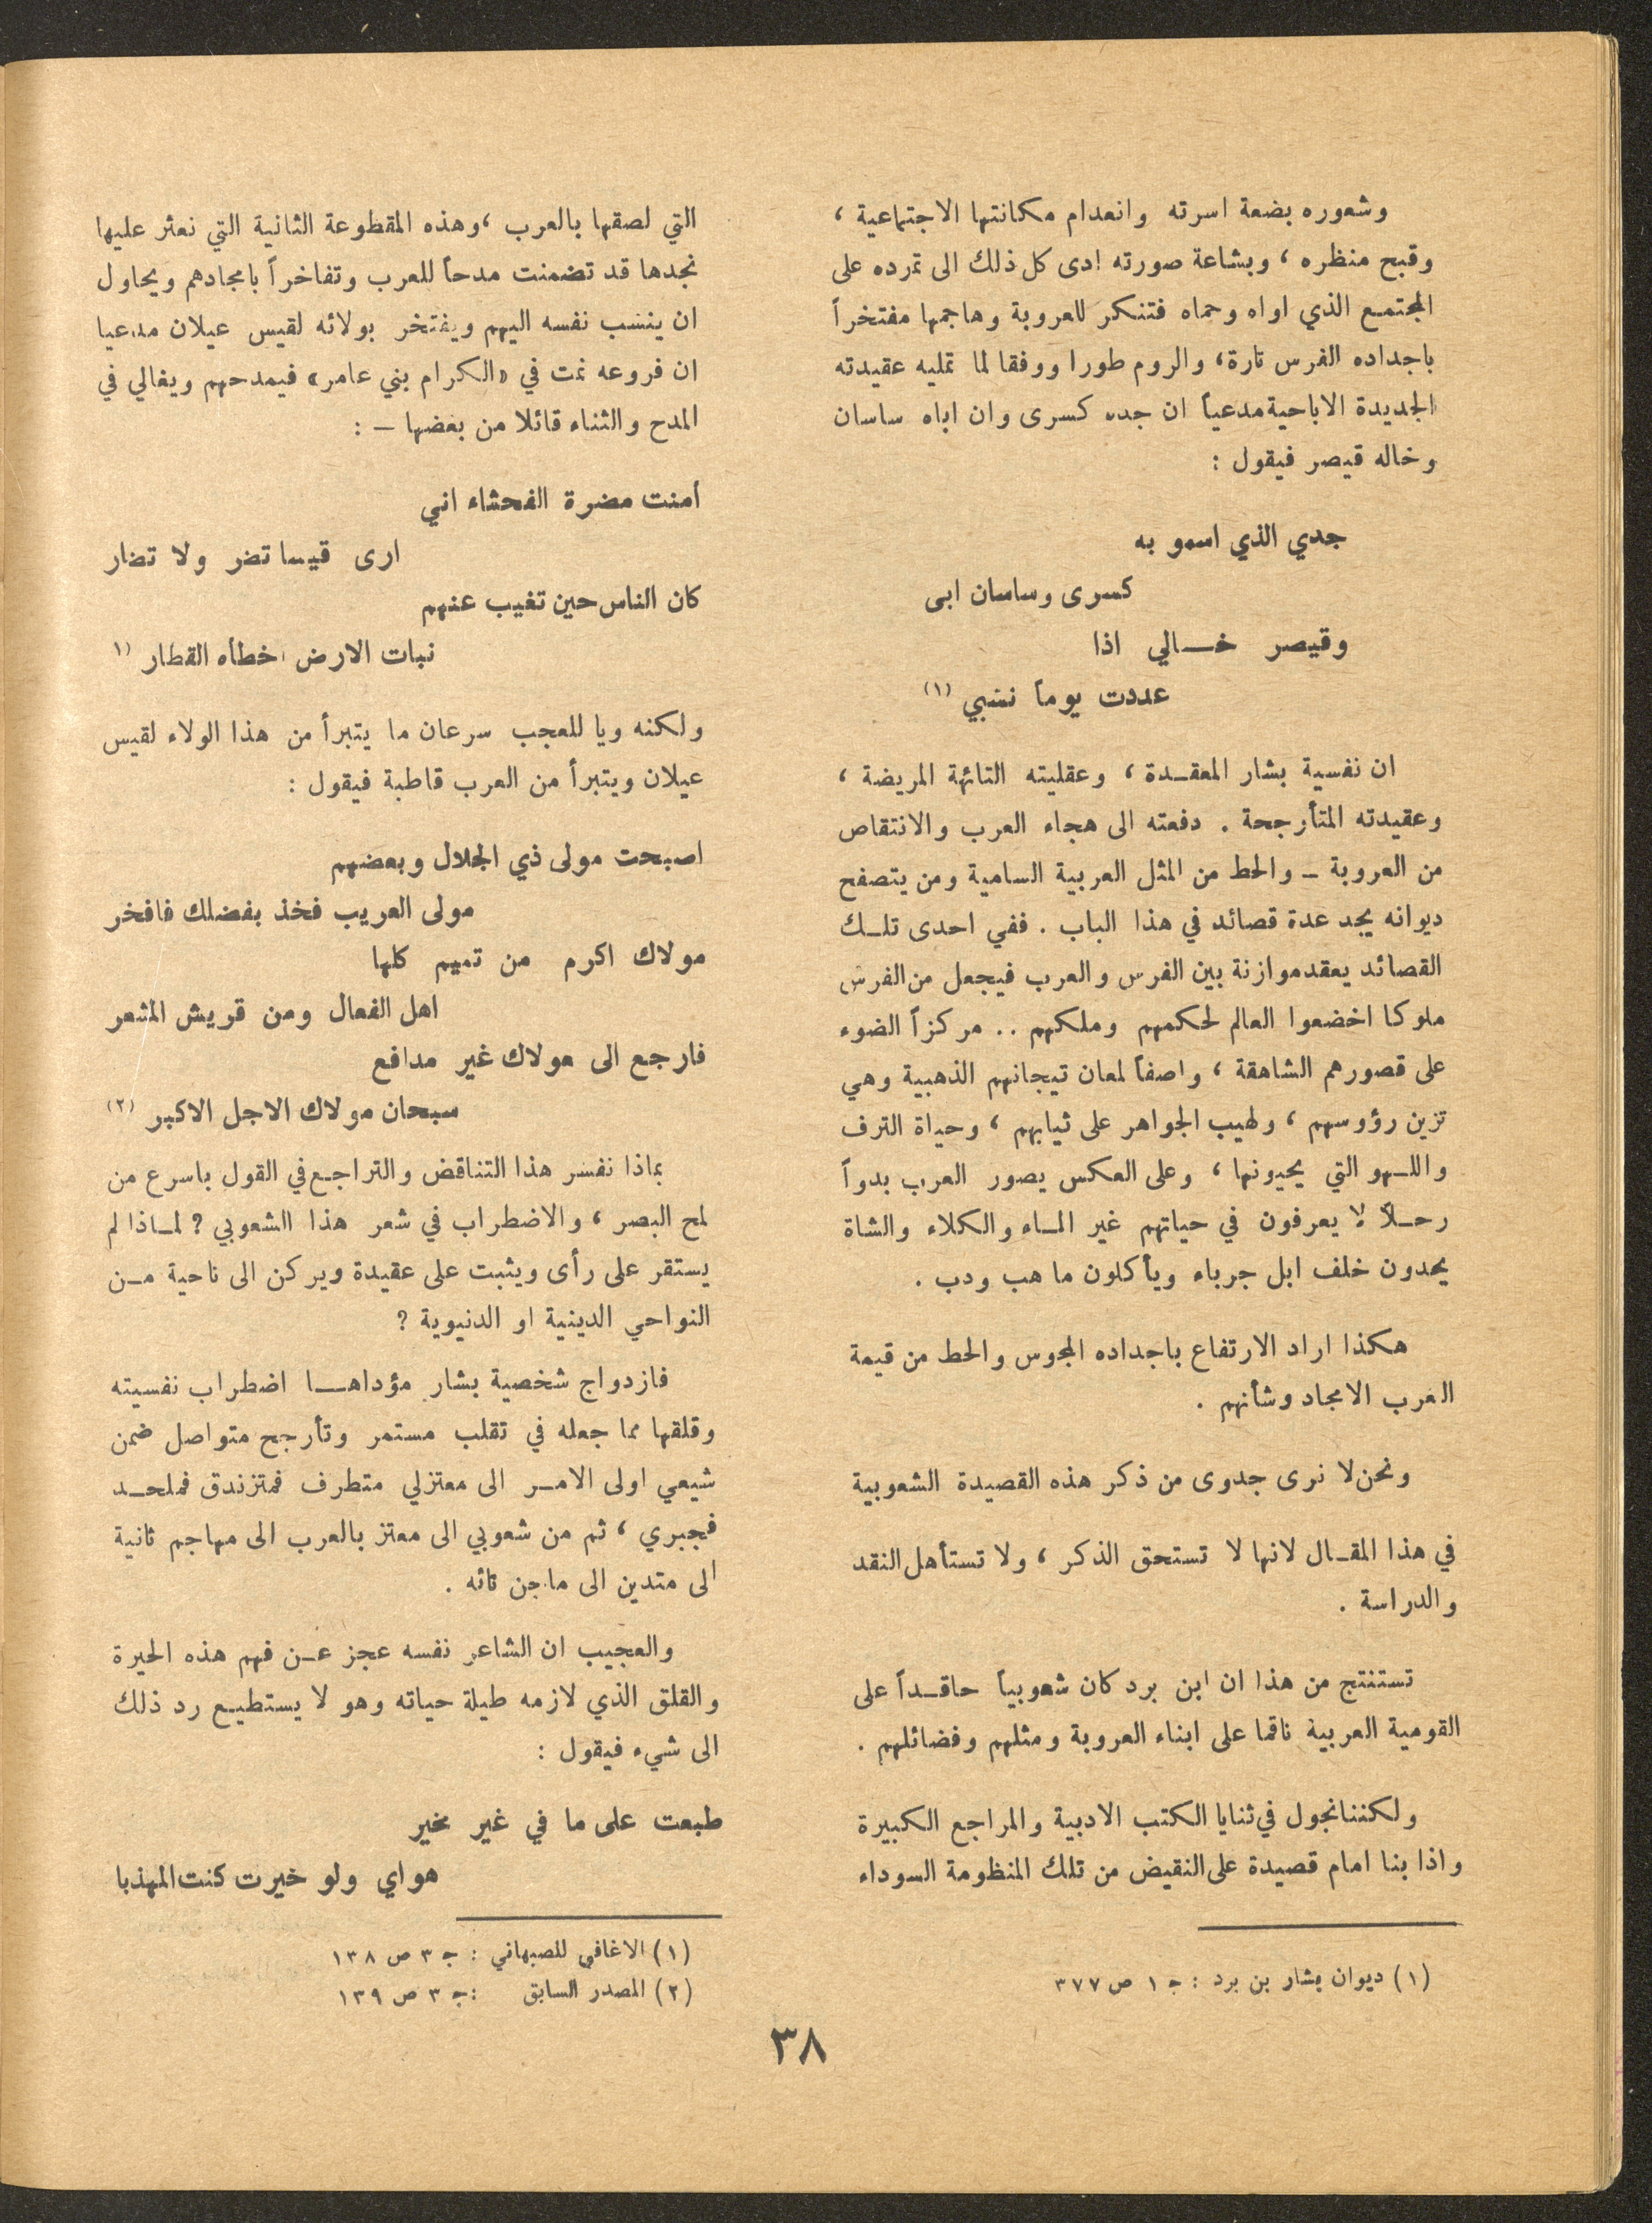 وشعوره بضعة اسرته وانعدام مكانتها الاجتماعية ،
وقبح منظره ، وبشاعة صورته ادى كل ذلك الى تمرده على
المجتمع الذي اواه وحماه فتنكر للعروبة وهاجمها مفتخراً
باجداده الفرس تارة، والروم طورا ووفقا لما تمليه عقيدته
الجديدة الاباحية مدعياً ان جده كسرى وان اباه ساسان
وخاله قيصر فيقول :
جدي الذي اسمو به
كسرى وساسان ابى
وقيصر خـالي اذا
عددت يوماً نسبي (١)
ان نفسية بشار المعقـدة ، وعقليته التائهة المريضة ،
وعقيدته المتأرجحة . دفعته الى هجاء العرب والانتقاص
من العروبة – والحط من المثل العربية السامية ومن يتصفح
ديوانه يجد عدة قصائد في هذا الباب . ففي احدى تلـك
القصائد يعقد موازنة بين الفرس والعرب فيجعل من الفرس
ملوكا اخضعوا العالم لحكمهم وملكهم .. مركزاً الضوء
على قصورهم الشاهقة ، واصفاً لمعان تيجانهم الذهبية وهي
تزين رؤوسهم ، ولهيب الجواهر على ثيابهم ، وحياة الترف
واللـهو التي يحيونها ، وعلى العكس يصور العرب بدواً
رحـلاً لا يعرفون في حياتهم غير المـاء والكلاء والشاة
يحدون خلف ابل جرباء ويأكلون ما هب ودب .
هكذا اراد الارتفاع باجداده المجوس والحط من قيمة
العرب الامجاد وشأنهم .
ونحن لا نرى جدوى من ذكر هذه القصيدة الشعوبية
في هذا المقـال لانها لا تستحق الذكر ، ولا تستأهل النقد
والدراسة .
تستنتج من هذا ان ابن برد كان شعوبياً حاقـداً على
القومية العربية ناقما على ابناء العروبة ومثلهم وفضائلهم .
ولكننا نجول في ثنايا الكتب الادبية والمراجع الكبيرة
واذا بنا امام قصيدة على النقيض من تلك المنظومة السوداء
(١) ديوان بشار بن برد : جـ ١ ص ٣٧٧
التي لصقها بالعرب ، وهذه المقطوعة الثانية التي نعثر عليها
نجدها قد تضمنت مدحاً للعرب وتفاخراً بامجادهم ويحاول
ان ينسب نفسه اليهم ويفتخر بولائه لقيس عيلان مدعيا
ان فروعه نمت في «الكرام بني عامر» فيمدحهم ويغالي في
المدح والثناء قائلا من بعضها – :
أمنت مضرة الفحشاء اني
ارى قيسا تضر ولا تضار
كان الناس حين تغيب عنهم
نبات الارض اخطأه القطار (١
ولكنه ويا للعجب سرعان ما يتبرأ من هذا الولاء لقيس
عيلان ويتبرأ من العرب قاطبة فيقول :
اصبحت مولى ذي الجلال وبعضهم
مولى العريب فخذ بفضلك فافخر
مولاك اكرم من تميم كلها
اهل الفعال ومن قريش المشعر
فارجع الى مولاك غير مدافع
سبحان مولاك الاجل الاكبر (٢)
بماذا نفسر هذا التناقض والتراجع في القول باسرع من
لمح البصر ، والاضطراب في شعر هذا الشعوبي ؟ لمـاذا لم
يستقر على رأى ويثبت على عقيدة ويركن الى ناحية مـن
النواحي الدينية او الدنيوية ؟
فازدواج شخصية بشار مؤداهـا اضطراب نفسيته
وقلقها مما جعله في تقلب مستمر وتأرجح متواصل ضمن
شيعي اولى الامـر الى معتزلي متطرف فمتزندق فملحـد
فجبري ، ثم من شعوبي الى معتز بالعرب الى مهاجم ثانية
الى متدين الى ماجن تائه .
والعجيب ان الشاعر نفسه عجز عـن فهم هذه الحيرة
والقلق الذي لازمه طيلة حياته وهو لا يستطيـع رد ذلك
الى شيء فيقول :
طبعت على ما في غير مخير
هواي ولو خيرت كنت المهذبا
(١) الاغافي للصبهاني : جـ ٣ ص ١٣٨
(٢) المصدر السابق : جـ ٣ ص ١٣٩
٣٨